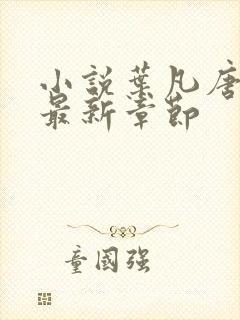 小説葉凡唐
最新章節
童國强